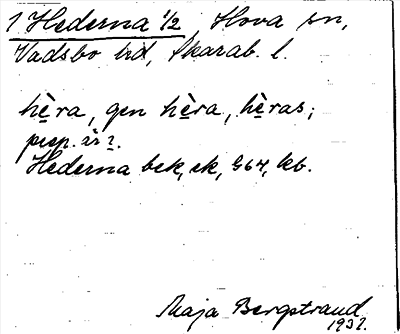 1 Hederna 1/2 Hova sn,
Vadsbo hd, Skarab. l.
hèra, gen hèra, hèras;
prep. är ?.
Hederna bek, ek, G64, kb.
Maja Bergstrand
1932.